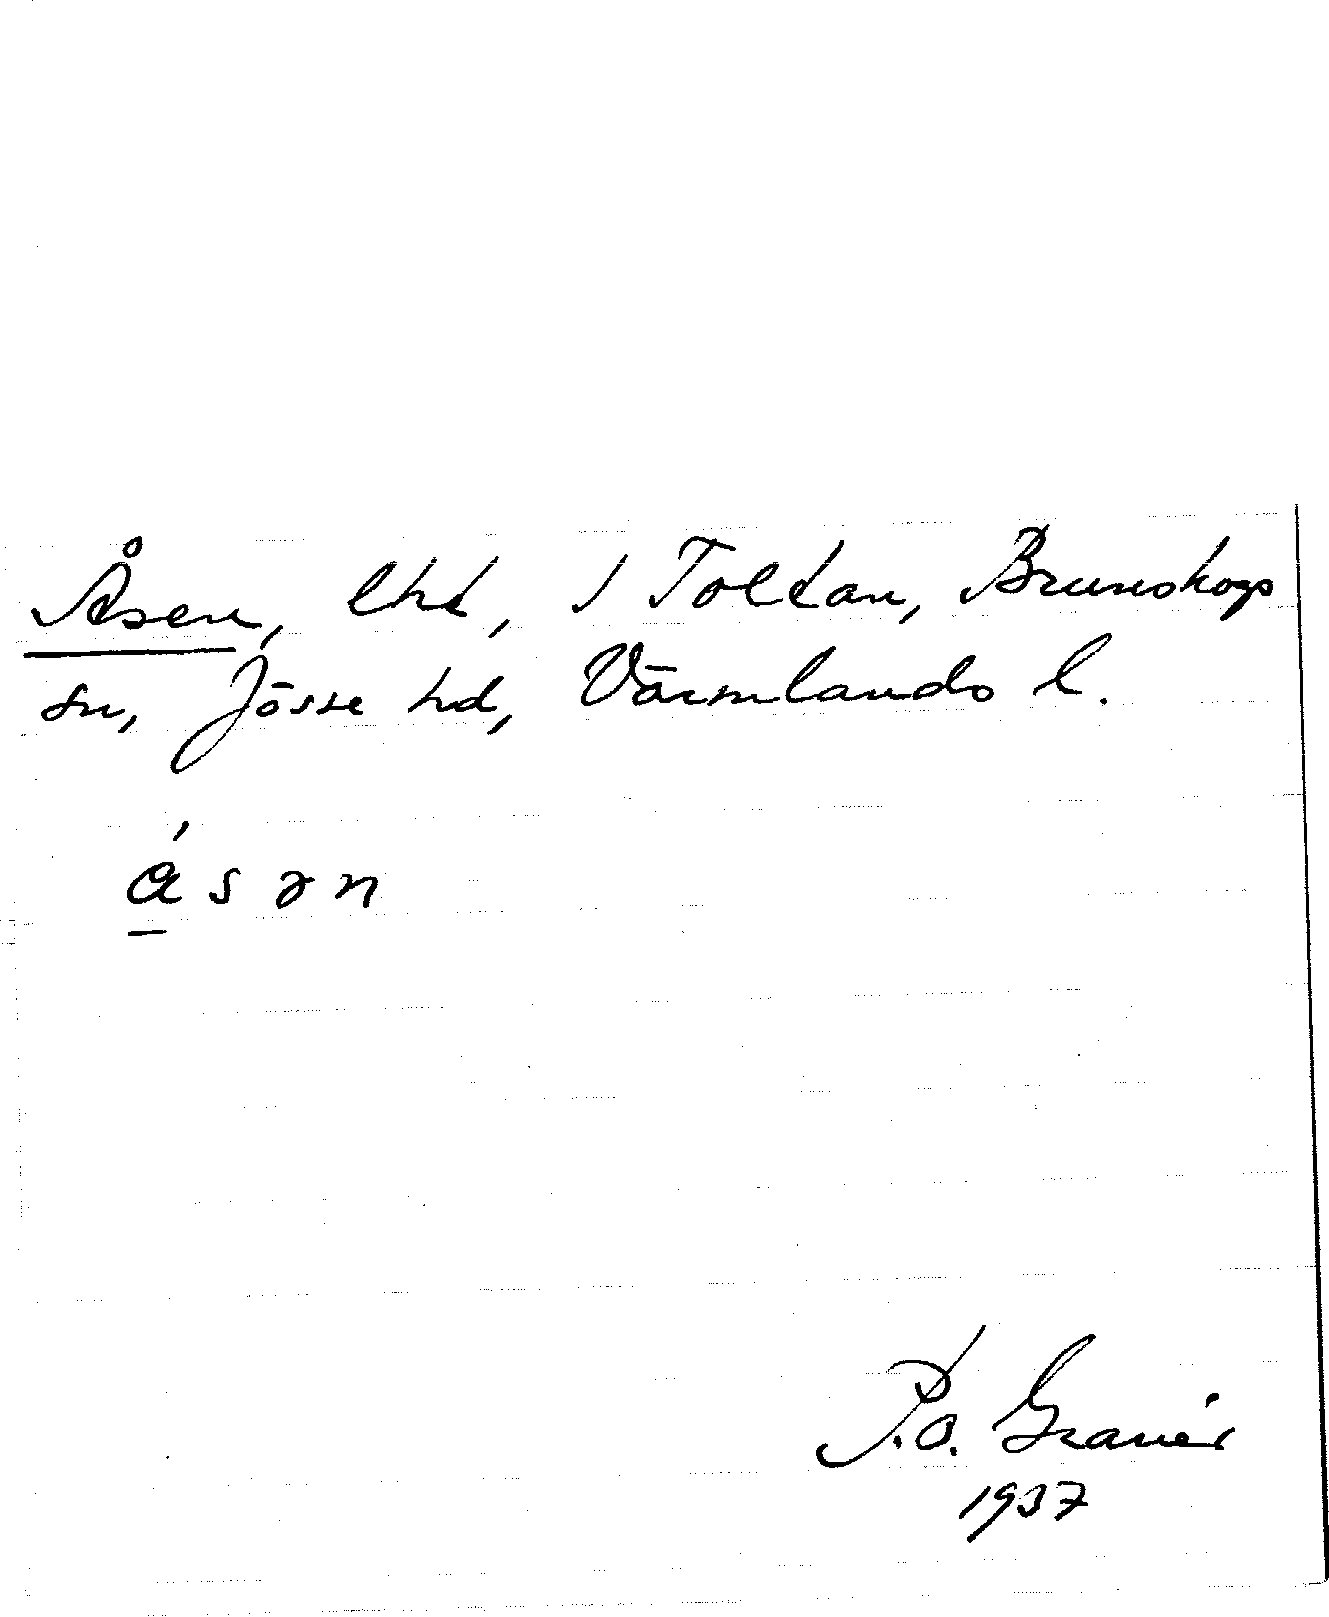 Åsen, lht, i Toltan, Brunskogs
sn, Jösse hd, Värmlands l.
åsən
P.O. Granér
1937